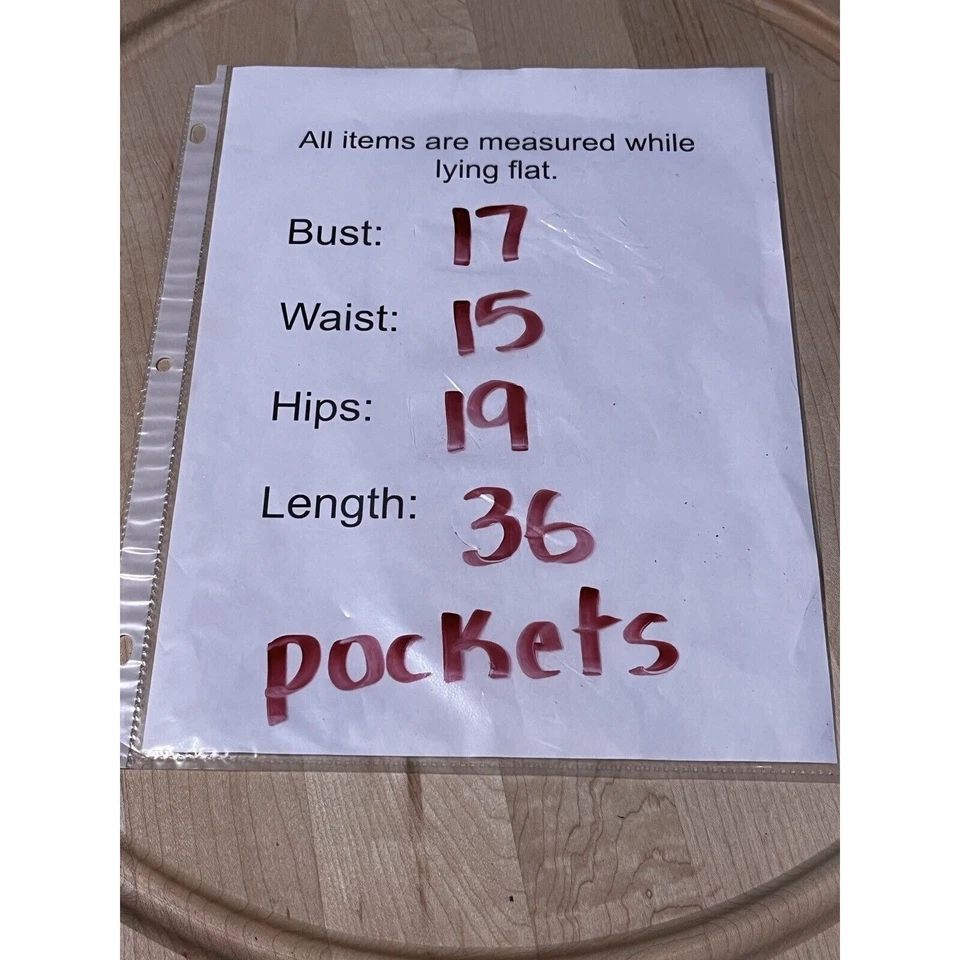 All items are measured while
lying flat.
Bust: 17
Waist: 15
Hips: 19
Length: 36
pockets